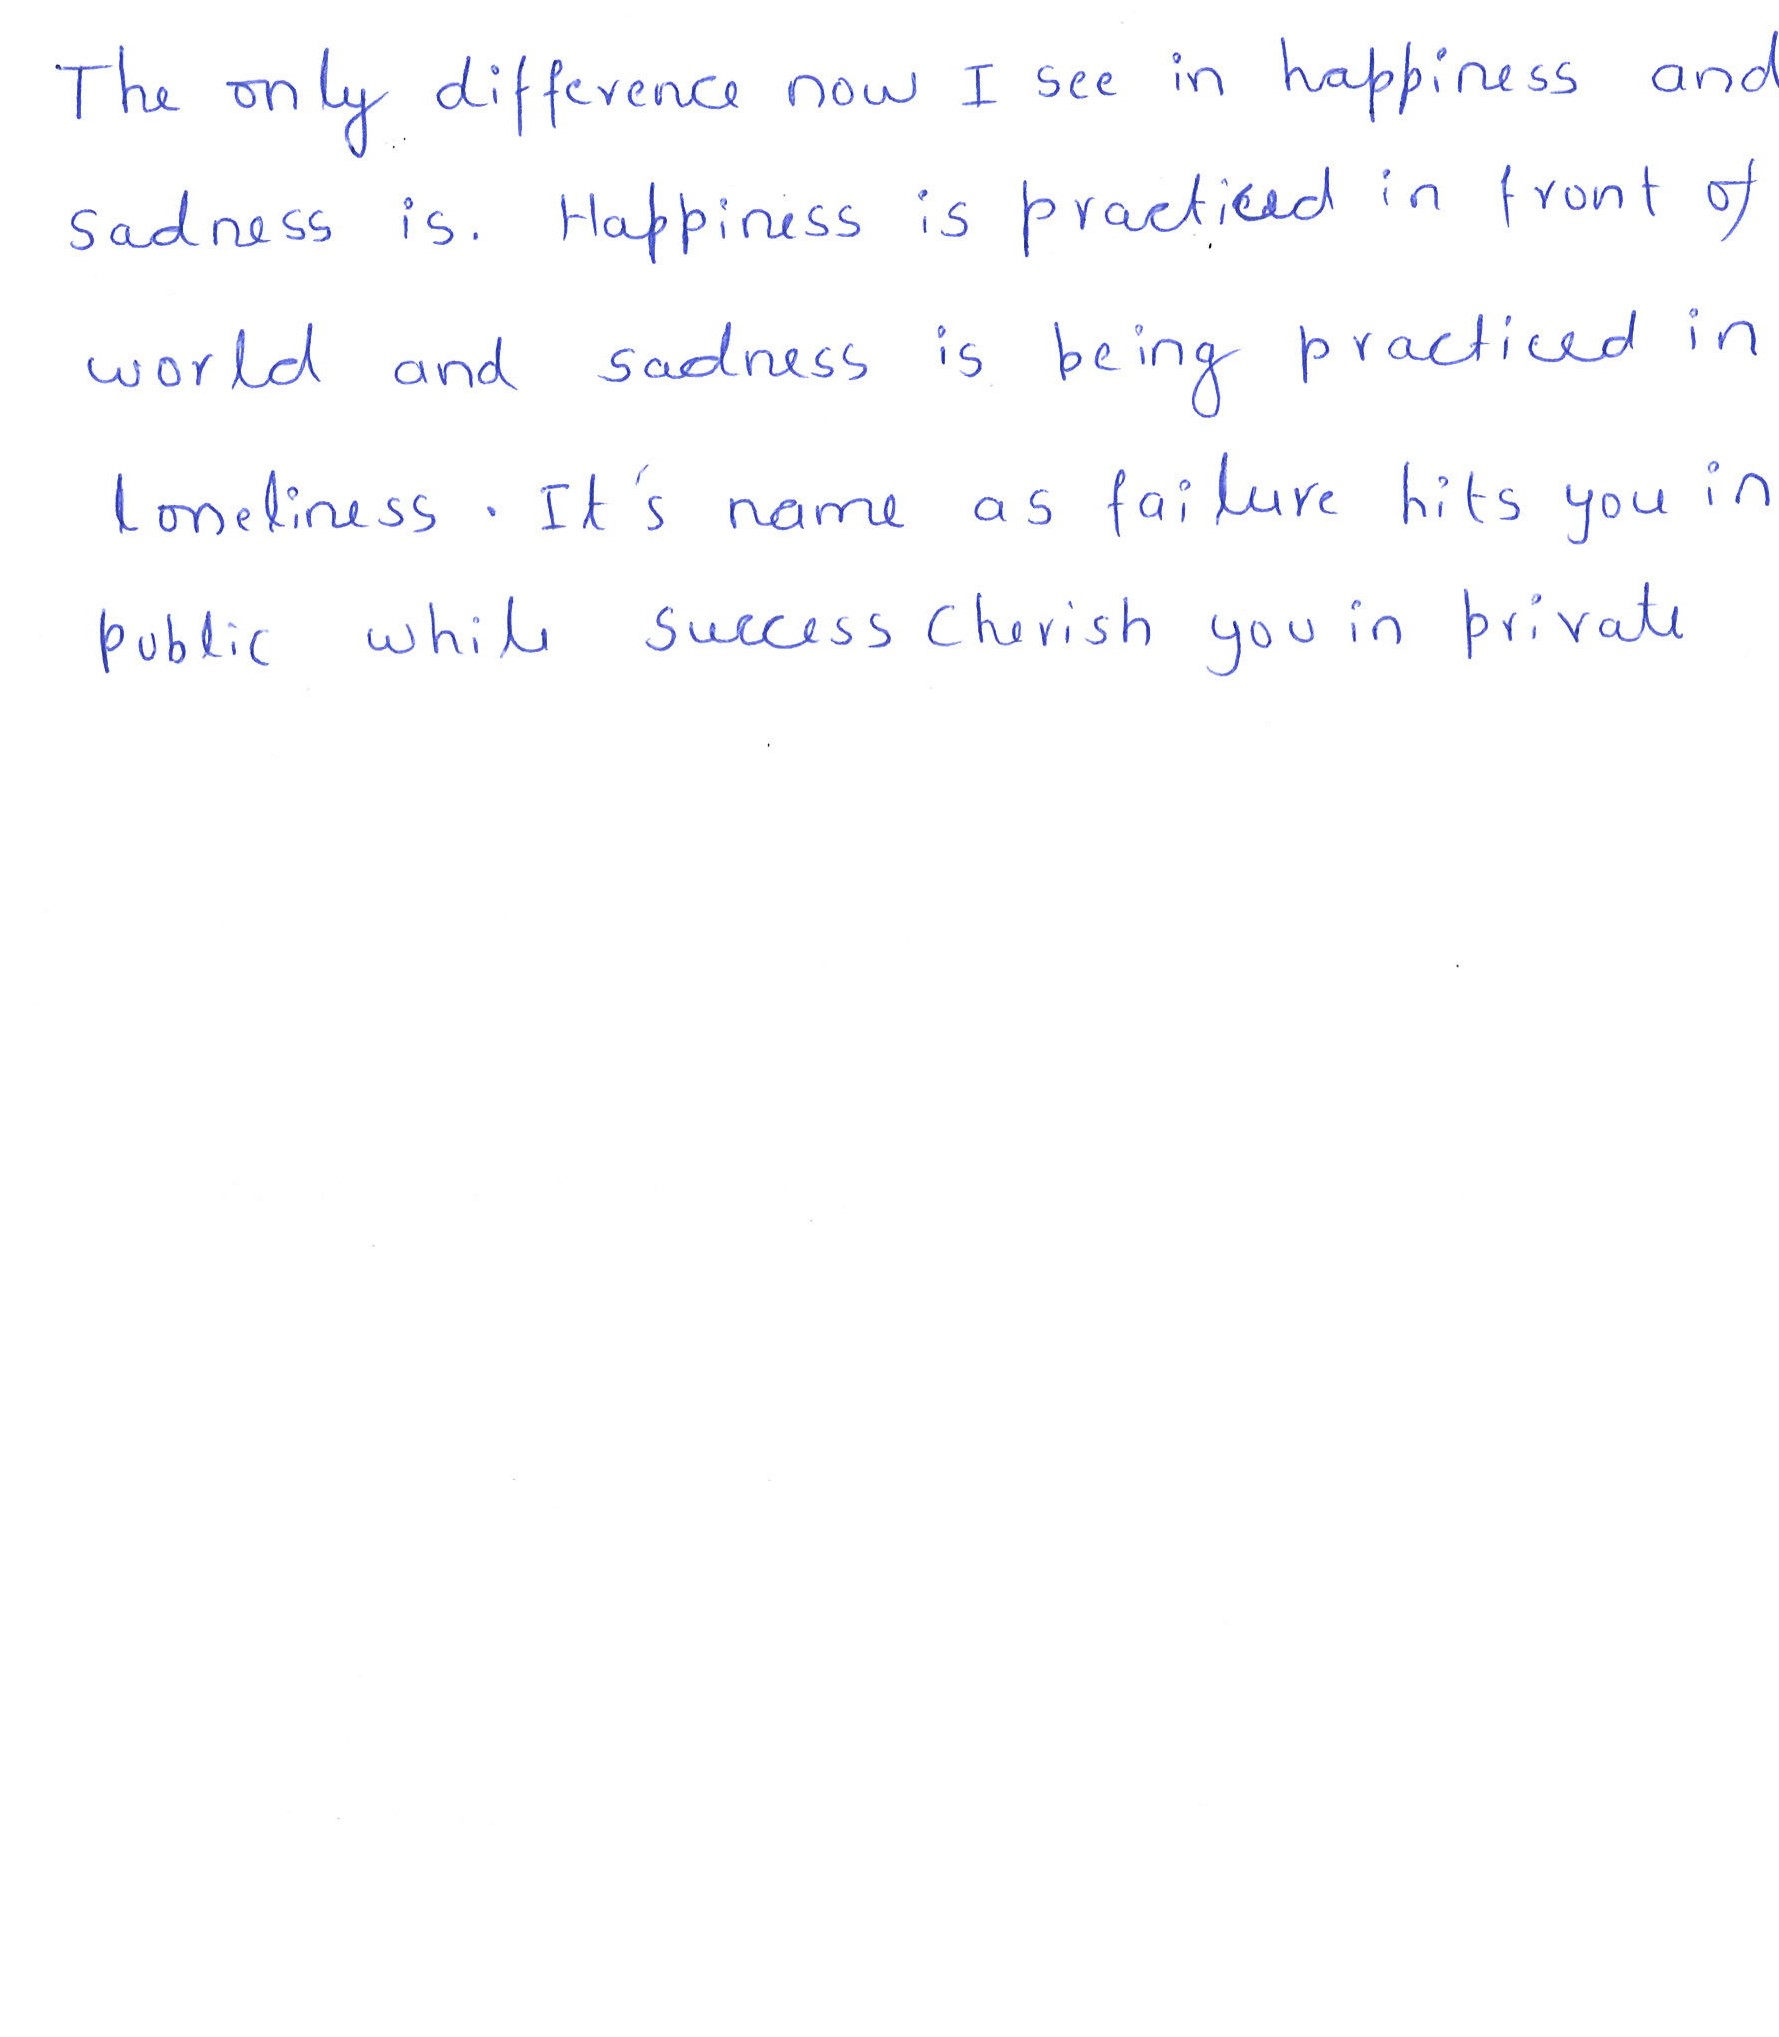 The only difference now I see in happiness and
sadness is. Happiness is practiced in front of
world and sadness is being practiced in
loneliness. It's name as failure hits you in
public while success cherish you in private